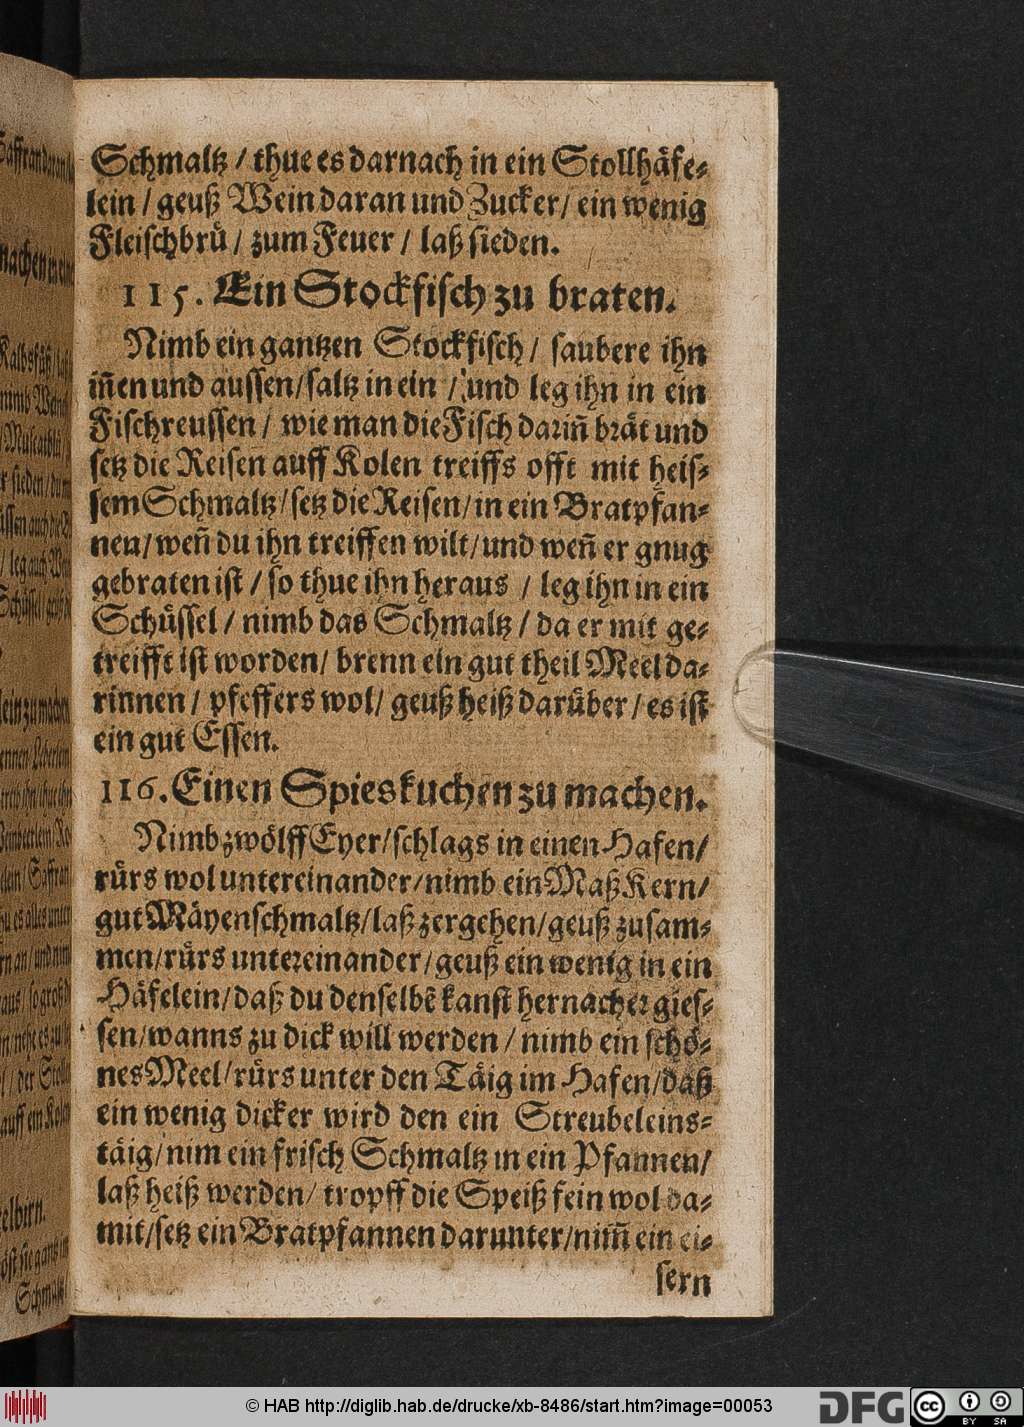 Schmaltz / thue es darnach in ein Stollhäfe-
lein / geuß Wein daran und Zucker / ein wenig
Fleischbrü / zum Feuer / laß sieden.
115. Ein Stockfisch zu braten.
Nimb ein gantzen Stockfisch / saubere ihn
iñen und aussen / saltz in ein / und leg ihn in ein
Fischreussen / wie man die Fisch dariñ brät und
setz die Reisen auff Kolen treiffs offt mit heis-
sem Schmaltz / setz die Reisen / in ein Bratpfan-
nen / weñ du ihn treiffen wilt / und weñ er gnug
gebraten ist / so thue ihn heraus / leg ihn in ein
Schüssel / nimb das Schmaltz / da er mit ge-
treifft ist worden / brenn ein gut theil Meel da-
rinnen / pfeffers wol / geuß heiß darüber / es ist
ein gut Essen.
116. Einen Spieskuchen zu machen.
Nimb zwölff Eyer / schlags in einen Hafen /
rürs wol untereinander / nimb ein Maß Kern /
gut Mäyenschmaltz / laß zergehen / geuß zusam-
men / rürs untereinander / geuß ein wenig in ein
Häfelein / daß du denselbē kanst hernacher gies-
sen / wanns zu dick will werden / nimb ein schö-
nes Meel / rürs unter den Täig im Hafen / daß
ein wenig dicker wird den ein Streubeleins-
täig / nim ein frisch Schmaltz in ein Pfannen /
laß heiß werden / tropff die Speiß fein wol da-
mit / setz ein Bratpfannen darunter / nim̃ ein ei-
sern
© HAB http://diglib.hab.de/drucke/xb-8486/start.htm?image=00053
DFG
cc BY SA